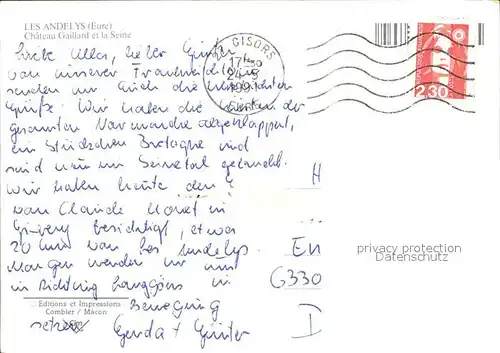 LES ANDELYS (Eure)
Château Gaillard et la Seine
GISORS
17H30
24-5
1991
2,30
Liebe Ulla, lieber Günter
von unserer Frankreich
senden wir Euch die herzlichsten
Grüße. Wir haben die der
gesamten Normandie abgeklappert,
ein Stückchen Bretagne und
sind nun im Seinetal gelandet.
Wir haben heute den G
von Claude Monet in
Giverny besichtigt, etwa
20 km von Les Andelys.
Morgen werden wir uns
in Richtung in
Bewegung
setzen
Gerda + Günter
H
En
6330
D
privacy protection
Datenschutz
Editions et Impressions
Combier / Mâcon